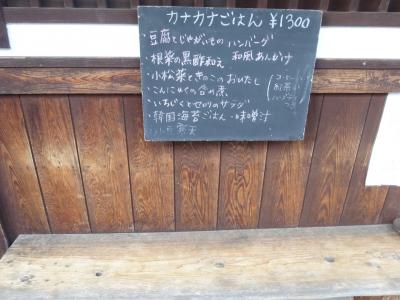 カナカナごはん ¥1300
・豆腐とじゃがいもの ハンバーグ
和風あんかけ
・根菜の黒酢和え
・小松菜ときのこの おひたし
・こんにゃくの
・いちじくとセロリのサラダ
・韓国海苔ごはん・味噌汁
コーヒー
紅茶